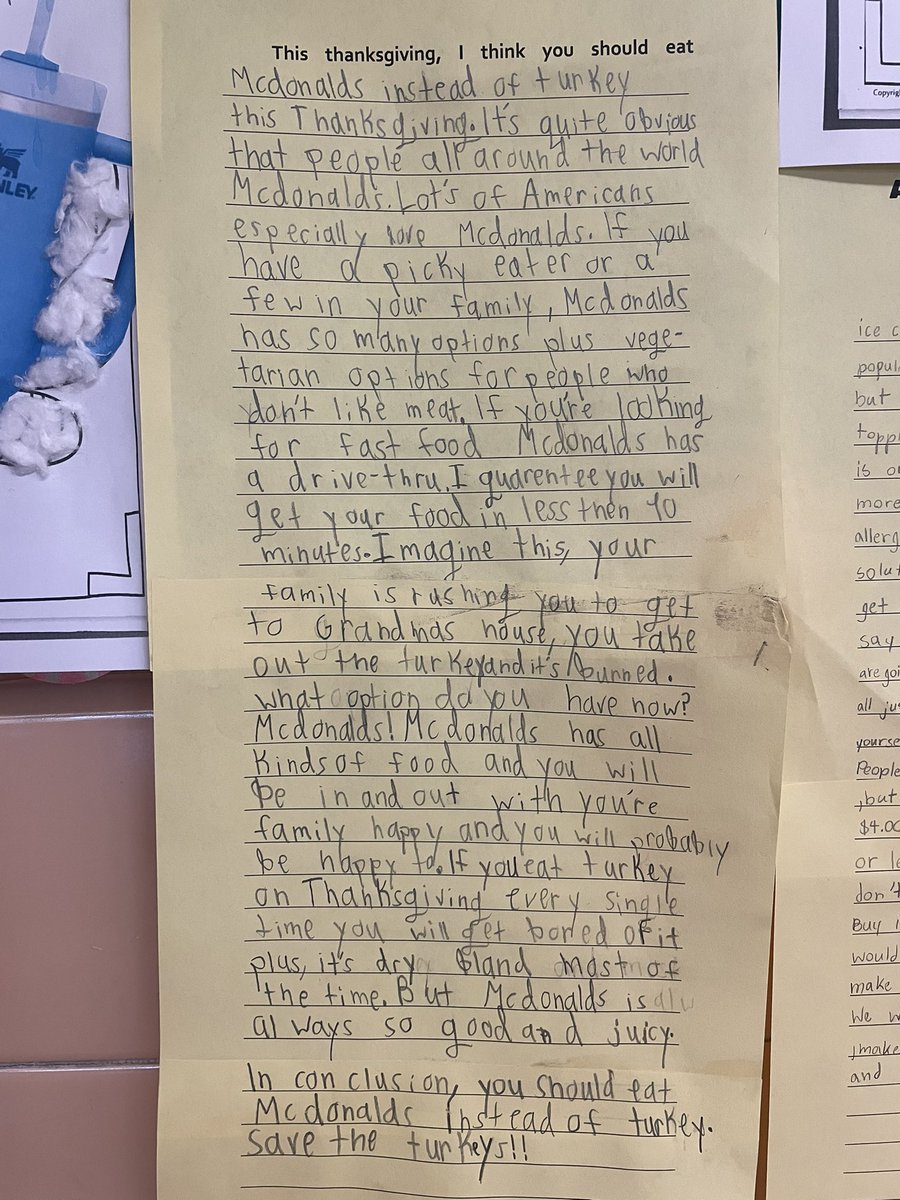 NLEY
This thanksgiving, I think you should eat
Mcdonalds instead of turkey
this Thanksgiving. It's quite obvious
that people all around the world
Mcdonalds. Lot's of Americans
especially love Mcdonalds. If you
have a picky eater or a
few in your family, Mcdonalds
has so many options plus vege-
tarian options for people who
don't like meat. If you're looking
for fast food Mcdonalds has
a drive-thru. I guarentee you will
get your food in less then 10
minutes. Imagine this, your
family is rushing you to get
to Grandmas house, you take
out the turkey and it's burned.
what option do you have now?
Mcdonalds! Mcdonalds has all
kinds of food and you will
be in and out with you're
family happy and you will probably
be happy to. If you eat turkey
on Thanksgiving every single
time you will get bored of it
plus, it's dry and most of
the time. But Mcdonalds is
always so good and juicy.
In conclusion, you should eat
Mcdonalds instead of turkey.
save the turkeys!!
Copyrig
ice c
popul
but
toppi
is o
more
allerg
solut
get
say
are goi
all jus
yourse
People
,but
$4.00
or le
don't
Buy
would
make
We w
,make
and